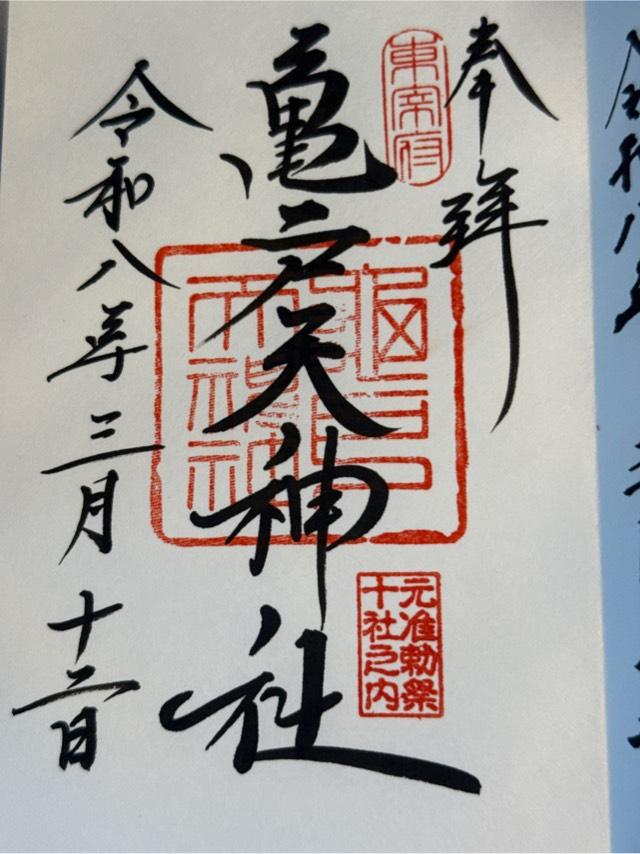 奉拝
東宰府
亀戸天神社
元准勅祭
十社之内
令和八年三月十二日